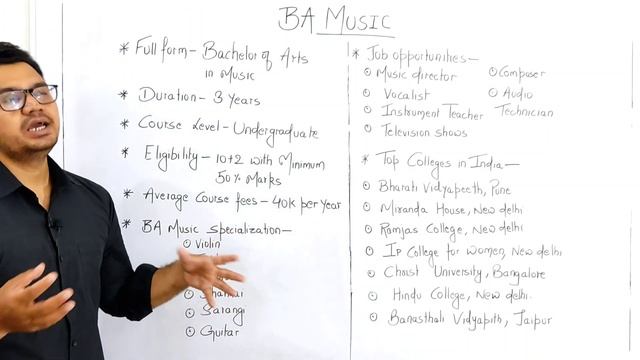 BA MUSIC
* Full form - Bachelor of Arts
in Music
* Duration - 3 Years
* Course Level - Undergraduate
* Eligibility - 10+2 with Minimum
50% Marks
* Average Course fees - 40K per Year
* BA Music Specialization -
Violin
Sarangi
Guitar
* Job opportunities -
Music director
Composer
Vocalist
Audio
Technician
Instrument Teacher
Television shows
* Top Colleges in India -
Bharati Vidyapeeth, Pune
Miranda House, New delhi
Ramjas College, New delhi
IP College for Women, New delhi
Christ University, Bangalore
Hindu College, New delhi.
Banasthali Vidyapith, Jaipur